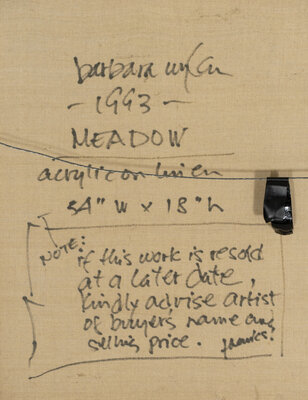 barbara
- 1993 -
MEADOW
acrylic on linen
54" W x 18" h
NOTE:
if this work is resold
at a later date,
kindly advise artist
of buyers name and
selling price. thanks!